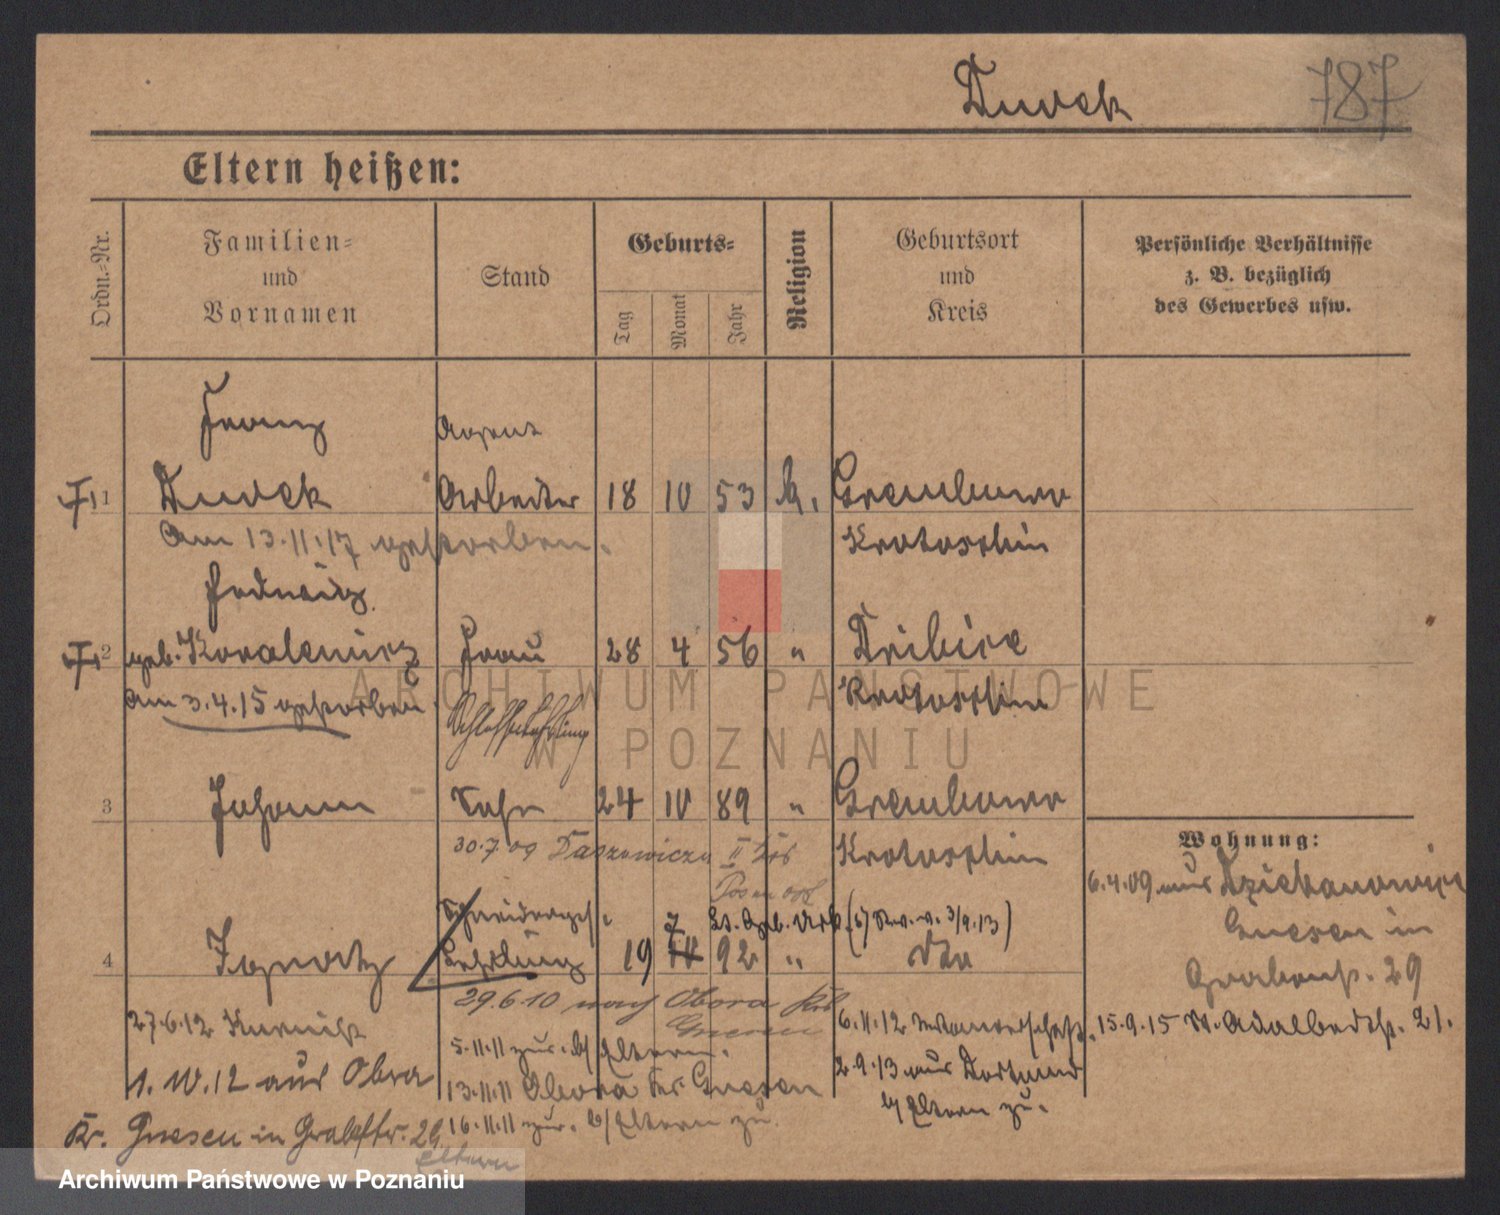 Durek
787
Eltern heißen:
Ordn.-Nr.
Familien-
und
Vornamen
Stand
Geburts-
Tag
Monat
Jahr
Religion
Geburtsort
und
Kreis
Persönliche Verhältnisse
z. B. bezüglich
des Gewerbes usw.
Franz
Agent
1 Durek Arbeiter 18 10 53 k. Grembowo
Am 13.11.17 gestorben. Krotoschin
Hedwig
2 geb. Frau 28 4 56 "
Am 3.4.15 gestorben Krotoschin
Schlosserlehrling
3 Johann Sohn 24 10 89 " Grembowo
30.7.09 II Krotoschin
Wohnung:
Posen
6.4.09 aus Dziekanowice
Schneiderges. 7
Gnesen in
4 Ignatz Lehrling 19 92 " Do
Grabenst. 29
29.6.10 nach Obora Kr.
Gnesen
27.6.12 6.11.12 15.9.15 St. Adalbertst. 21.
5.11.11 zur. b/ Eltern.
2.9.13 aus Dortmund
1.10.12 aus Obra 13.11.11 Obora Kr. Gnesen
b/ Eltern zu.
Kr. Gnesen in Grabstr. 29. 16.11.11 zur. b/ Eltern zu.
Eltern
ARCHIWUM PAŃSTWOWE
W POZNANIU
Archiwum Państwowe w Poznaniu